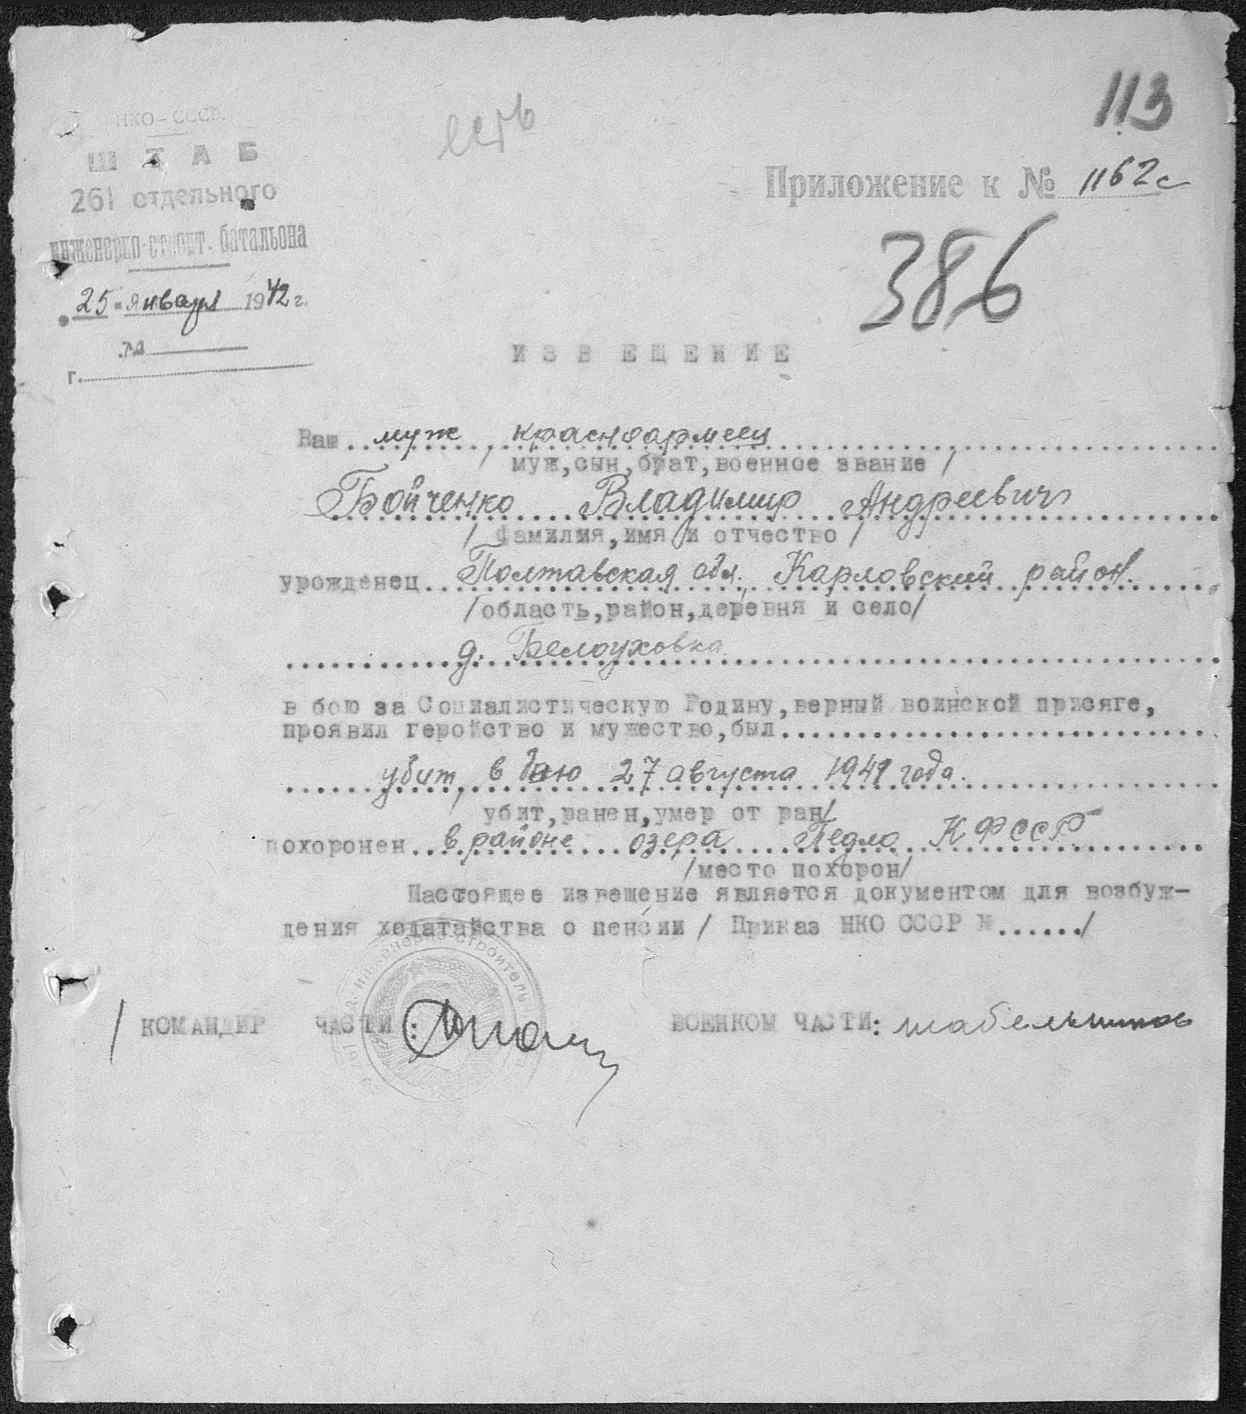 113
есть
НКО-СССР.
ШТАБ
261 отдельного
инженерно-строит. батальона
"25" января 1942 г.
№
г.
Приложение к № 1162с
386
ИЗВЕЩЕНИЕ
Ваш муж, красноармеец
муж,сын,брат,военное звание /
Бойченко Владимир Андреевич
/ фамилия,имя и отчество /
урожденец Полтавская обл., Карловский район.
/область,район,деревня и село/
д. Белоуховка
в бою за Социалистическую Родину,верный воинской присяге,
проявил геройство и мужество,был
убит, в бою 27 августа 1941 года.
убит,ранен,умер от ран/
похоронен в районе озера Педло КФССР
/место похорон/
Настоящее извещение является документом для возбуж-
дения ходатайства о пенсии / Приказ НКО СССР №....../
/ КОМАНДИР ЧАСТИ: ВОЕНКОМ ЧАСТИ: